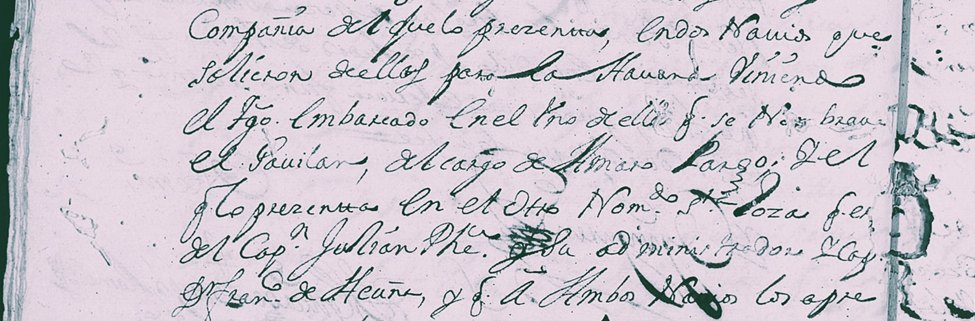 Compañia del que lo prezentta, En dos Navios que
Salieron de ellas para la Havana Viniendo
el Tgo. Embarcado En el Vno de ellos q. se Nombrava
el Gavilan, del cargo de Amaro Pargo; Y el
q lo prezentta En el Otro Nom.do S.ta Roza q. es
del Cap.n Julian Phe. su administrador Y Cap.
Dn Fran.co de, y q. A Ambos Navios los apre